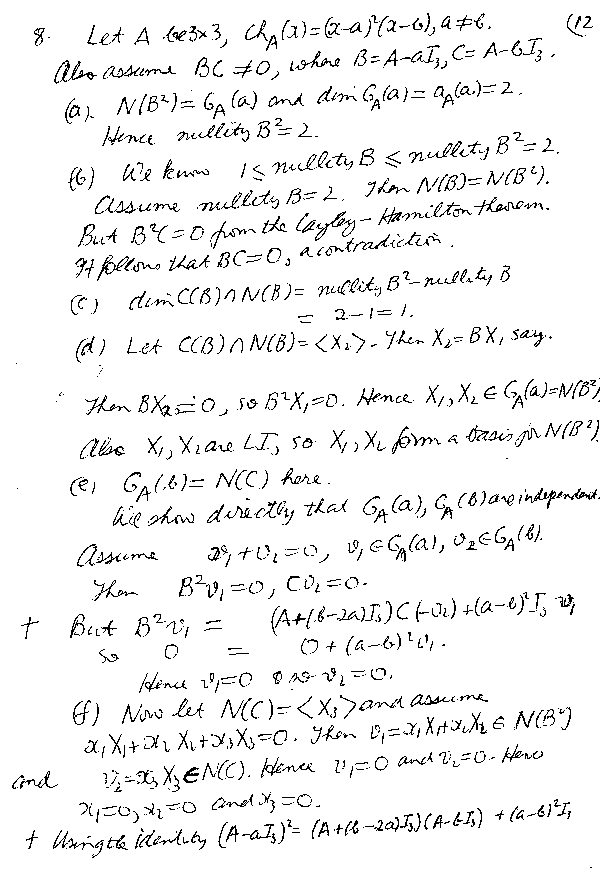 8. Let A be 3×3, ch_A(x)=(x-a)²(x-b), a≠b. (12
Also assume BC ≠0, where B=A-aI₃, C= A-bI₃.
(a). N(B²)= G_A(a) and dim G_A(a)= a_A(a)=2.
Hence nullity B²=2.
(b) We know 1≤ nullity B ≤ nullity B²=2.
Assume nullity B=2. Then N(B)=N(B²).
But B²C=0 from the Cayley-Hamilton theorem.
It follows that BC=0, a contradiction.
(c) dim C(B)∩N(B)= nullity B²-nullity B
= 2-1=1.
(d) Let C(B)∩N(B)=<X₂>. Then X₂=BX₁ say.
Then BX₂=0, so B²X₁=0. Hence X₁,X₂ ∈ G_A(a)=N(B²)
Also X₁,X₂ are LI, so X₁,X₂ form a basis for N(B²)
(e) G_A(b)= N(C) here.
We show directly that G_A(a), G_A(b) are independent.
Assume v₁+v₂=0, v₁∈G_A(a), v₂∈G_A(b).
Then B²v₁=0, Cv₂=0.
† But B²v₁ = (A+(b-2a)I₃)C(-v₂)+(a-b)²I₃ v₁
so 0 = 0+(a-b)²v₁.
Hence v₁=0 so v₂=0.
(f) Now let N(C)=<X₃> and assume
x₁X₁+x₂X₂+x₃X₃=0. Then v₁=x₁X₁+x₂X₂ ∈ N(B²)
and v₂=x₃X₃∈N(C). Hence v₁=0 and v₂=0. Hence
x₁=0, x₂=0 and x₃=0.
† Using the identity (A-aI₃)²= (A+(b-2a)I₃)(A-bI₃) +(a-b)²I₃